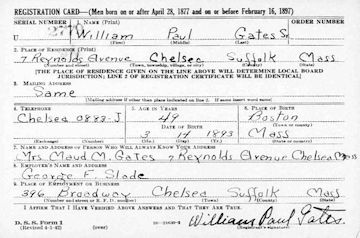 REGISTRATION CARD—(Men born on or after April 28, 1877 and on or before February 16, 1897)
SERIAL NUMBER 1. NAME (Print) ORDER NUMBER
U William Paul Gates Sr.
(First) (Middle) (Last)
2. PLACE OF RESIDENCE (Print)
7 Reynolds Avenue Chelsea Suffolk Mass
(Number and street) (Town, township, village, or city) (County) (State)
[THE PLACE OF RESIDENCE GIVEN ON THE LINE ABOVE WILL DETERMINE LOCAL BOARD
JURISDICTION; LINE 2 OF REGISTRATION CERTIFICATE WILL BE IDENTICAL]
3. MAILING ADDRESS
Same
[Mailing address if other than place indicated on line 2. If same insert word same]
4. TELEPHONE 5. AGE IN YEARS 6. PLACE OF BIRTH
Chelsea 0883-J 49 Boston
DATE OF BIRTH (Town or county)
3 14 1893 Mass
(Exchange) (Number) (Mo.) (Day) (Yr.) (State or country)
7. NAME AND ADDRESS OF PERSON WHO WILL ALWAYS KNOW YOUR ADDRESS
Mrs Maud M. Gates 7 Reynolds Avenue Chelsea Mass
8. EMPLOYER'S NAME AND ADDRESS
George F. Slade
9. PLACE OF EMPLOYMENT OR BUSINESS
396 Broadway Chelsea Suffolk Mass
(Number and street or R. F. D. number) (Town) (County) (State)
I AFFIRM THAT I HAVE VERIFIED ABOVE ANSWERS AND THAT THEY ARE TRUE.
D. S. S. Form 1
(Revised 4-1-42) (over) William Paul Gates.